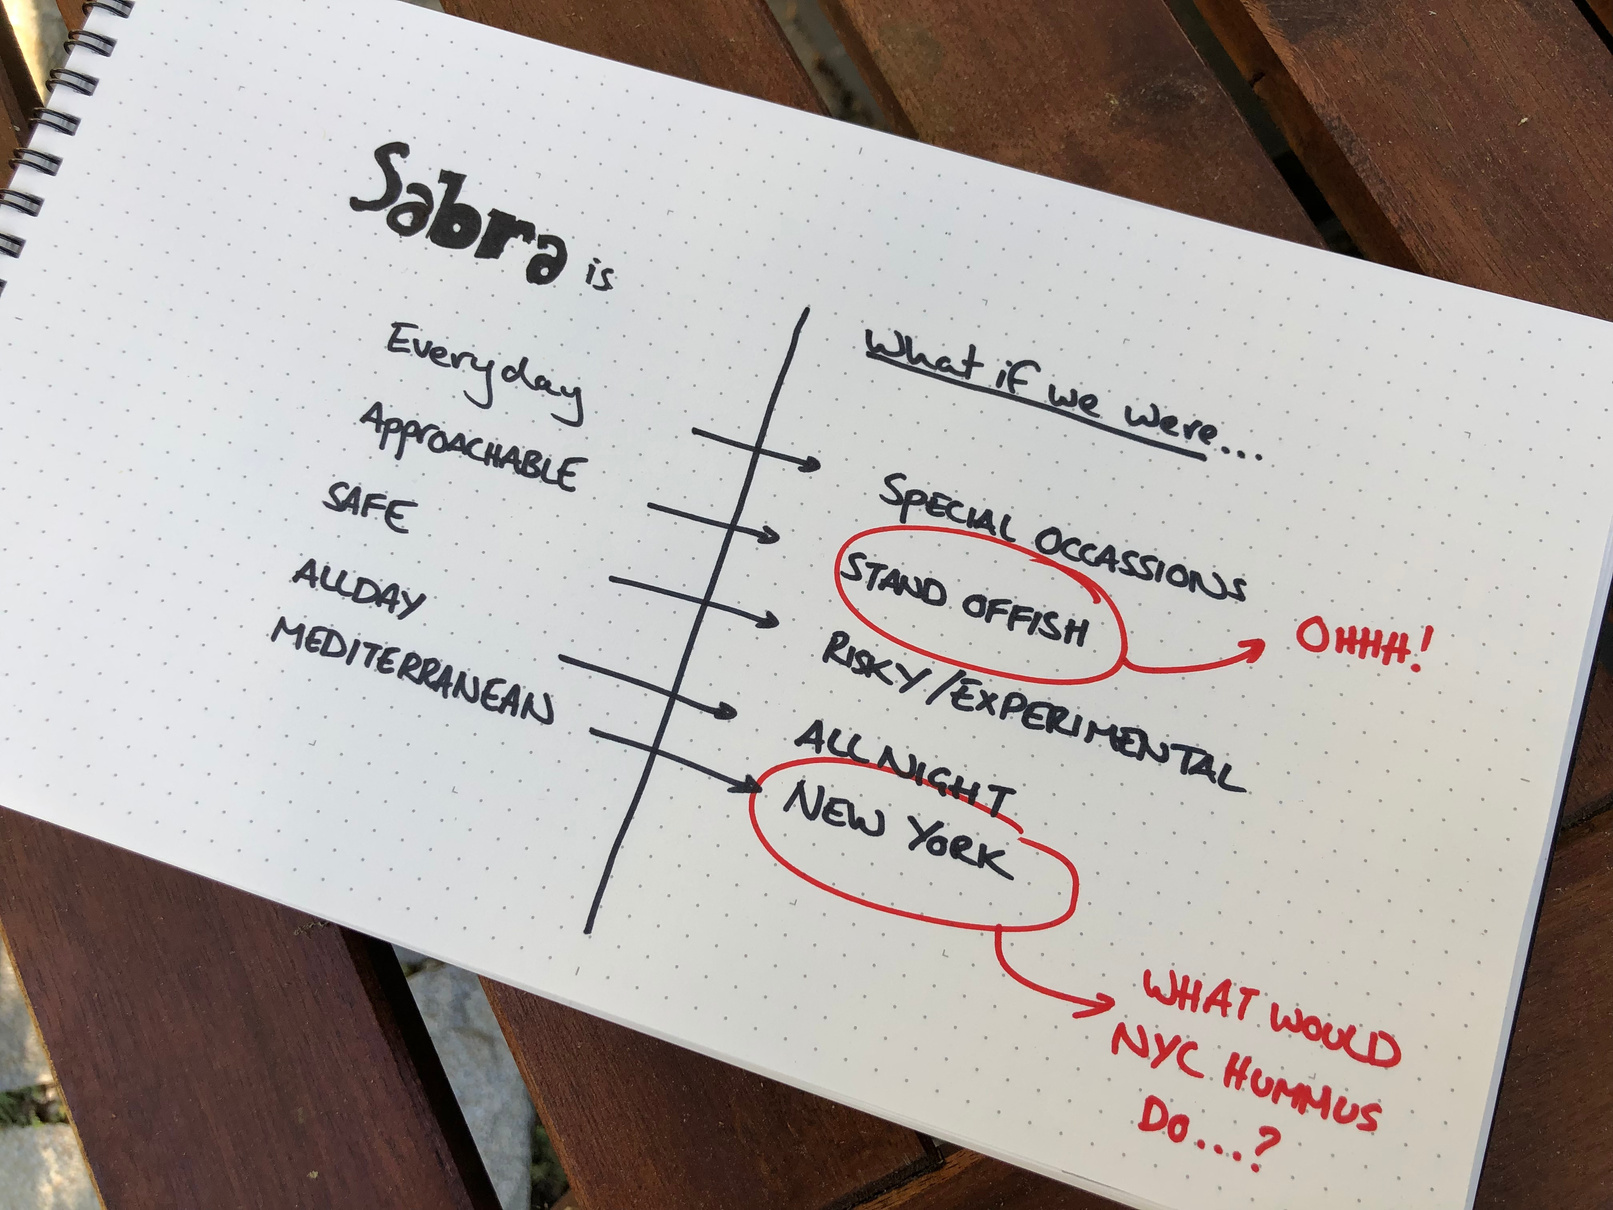 Sabra is
Everyday
APPROACHABLE
SAFE
ALLDAY
MEDITERRANEAN
What if we were...
SPECIAL OCCASSIONS
STAND OFFISH
RISKY/EXPERIMENTAL
ALLNIGHT
NEW YORK
OHHH!
WHAT WOULD
NYC HUMMUS
DO...?